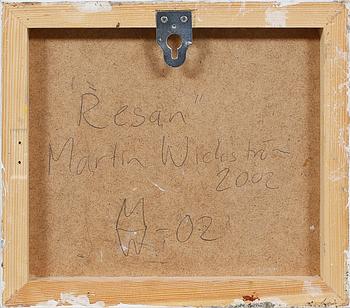 "Resan"
Martin Wickström
2002
MW-02